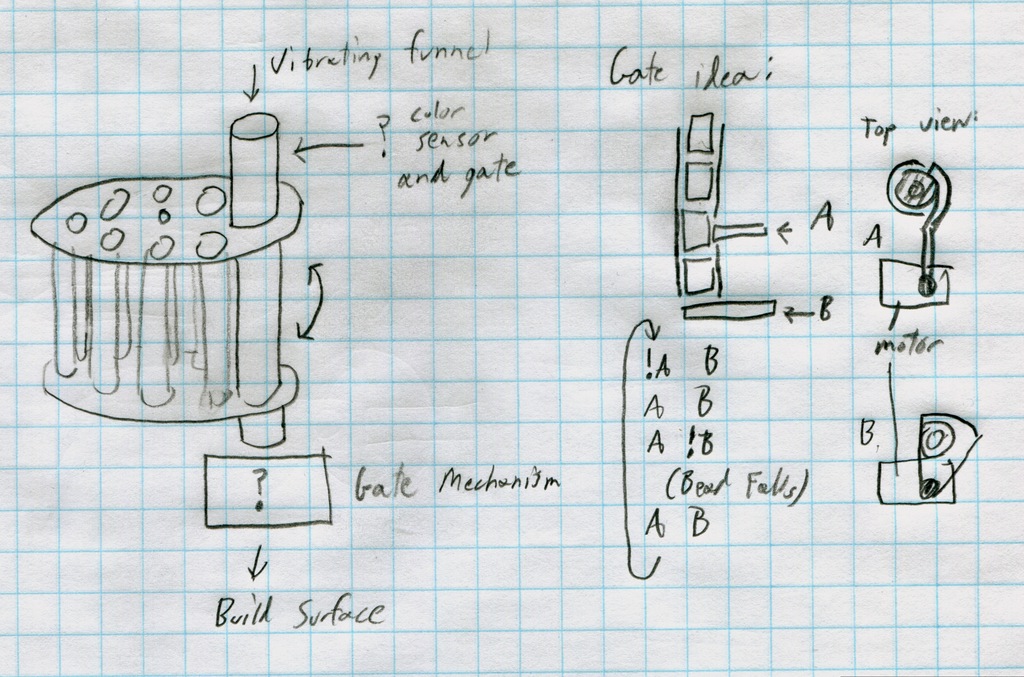 Vibrating funnel
? color
sensor
and gate
?
Gate Mechanism
Build Surface
Gate idea:
A
B
!A B
A B
A !B
(Bead Falls)
A B
Top view:
A
motor
B